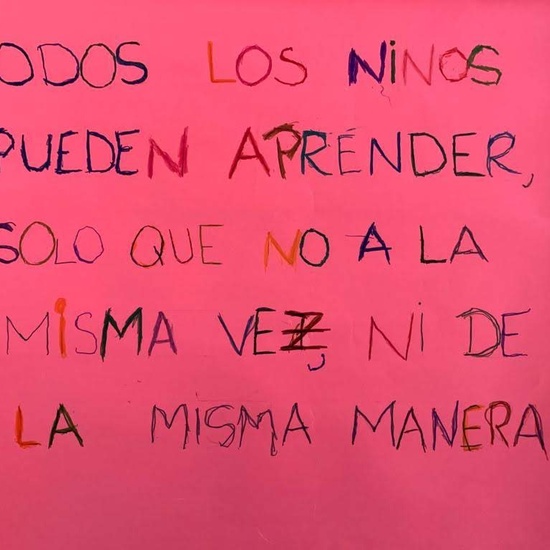 ODOS LOS NiNOS
PUEDEN APRENDER,
SOLO QUE NO A LA
MiSMA VEZ, Ni DE
LA MiSMA MANERA